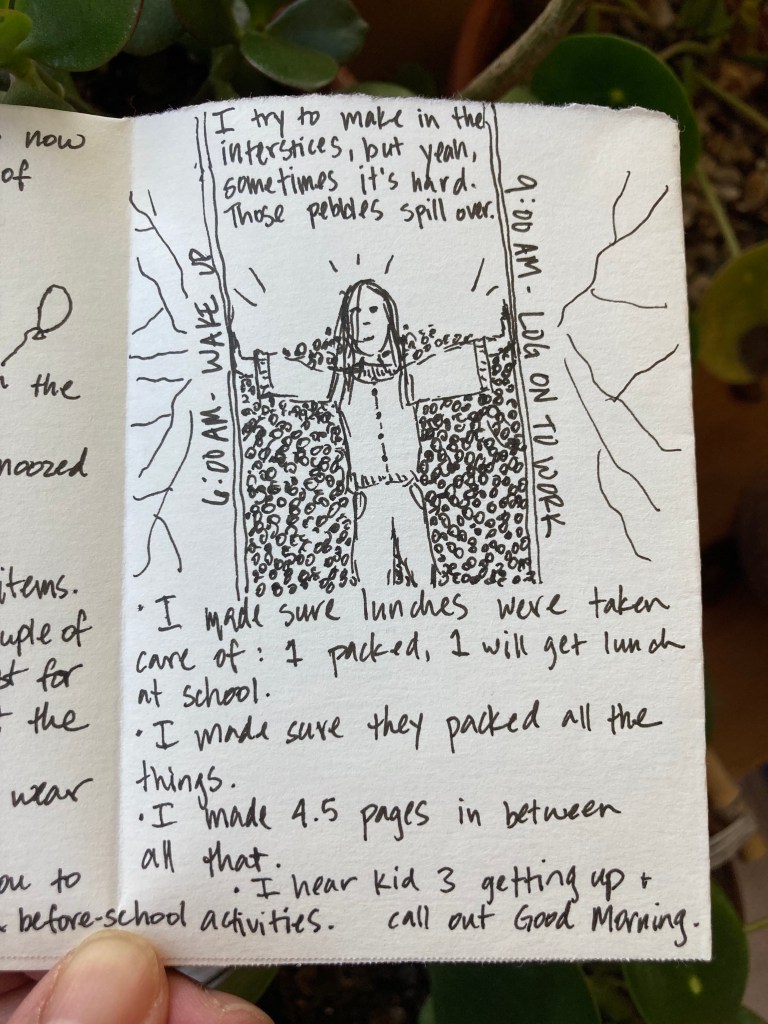 now
of
the
noozed
items.
uple of
st for
the
wear
ou to
before-school activities.
I try to make in the
interstices, but yeah,
sometimes it's hard.
Those pebbles spill over.
6:00 AM - WAKE UP
9:00 AM - LOG ON TO WORK
• I made sure lunches were taken
care of: 1 packed, 1 will get lunch
at school.
• I made sure they packed all the
things.
• I made 4.5 pages in between
all that.
• I hear kid 3 getting up +
call out Good Morning.